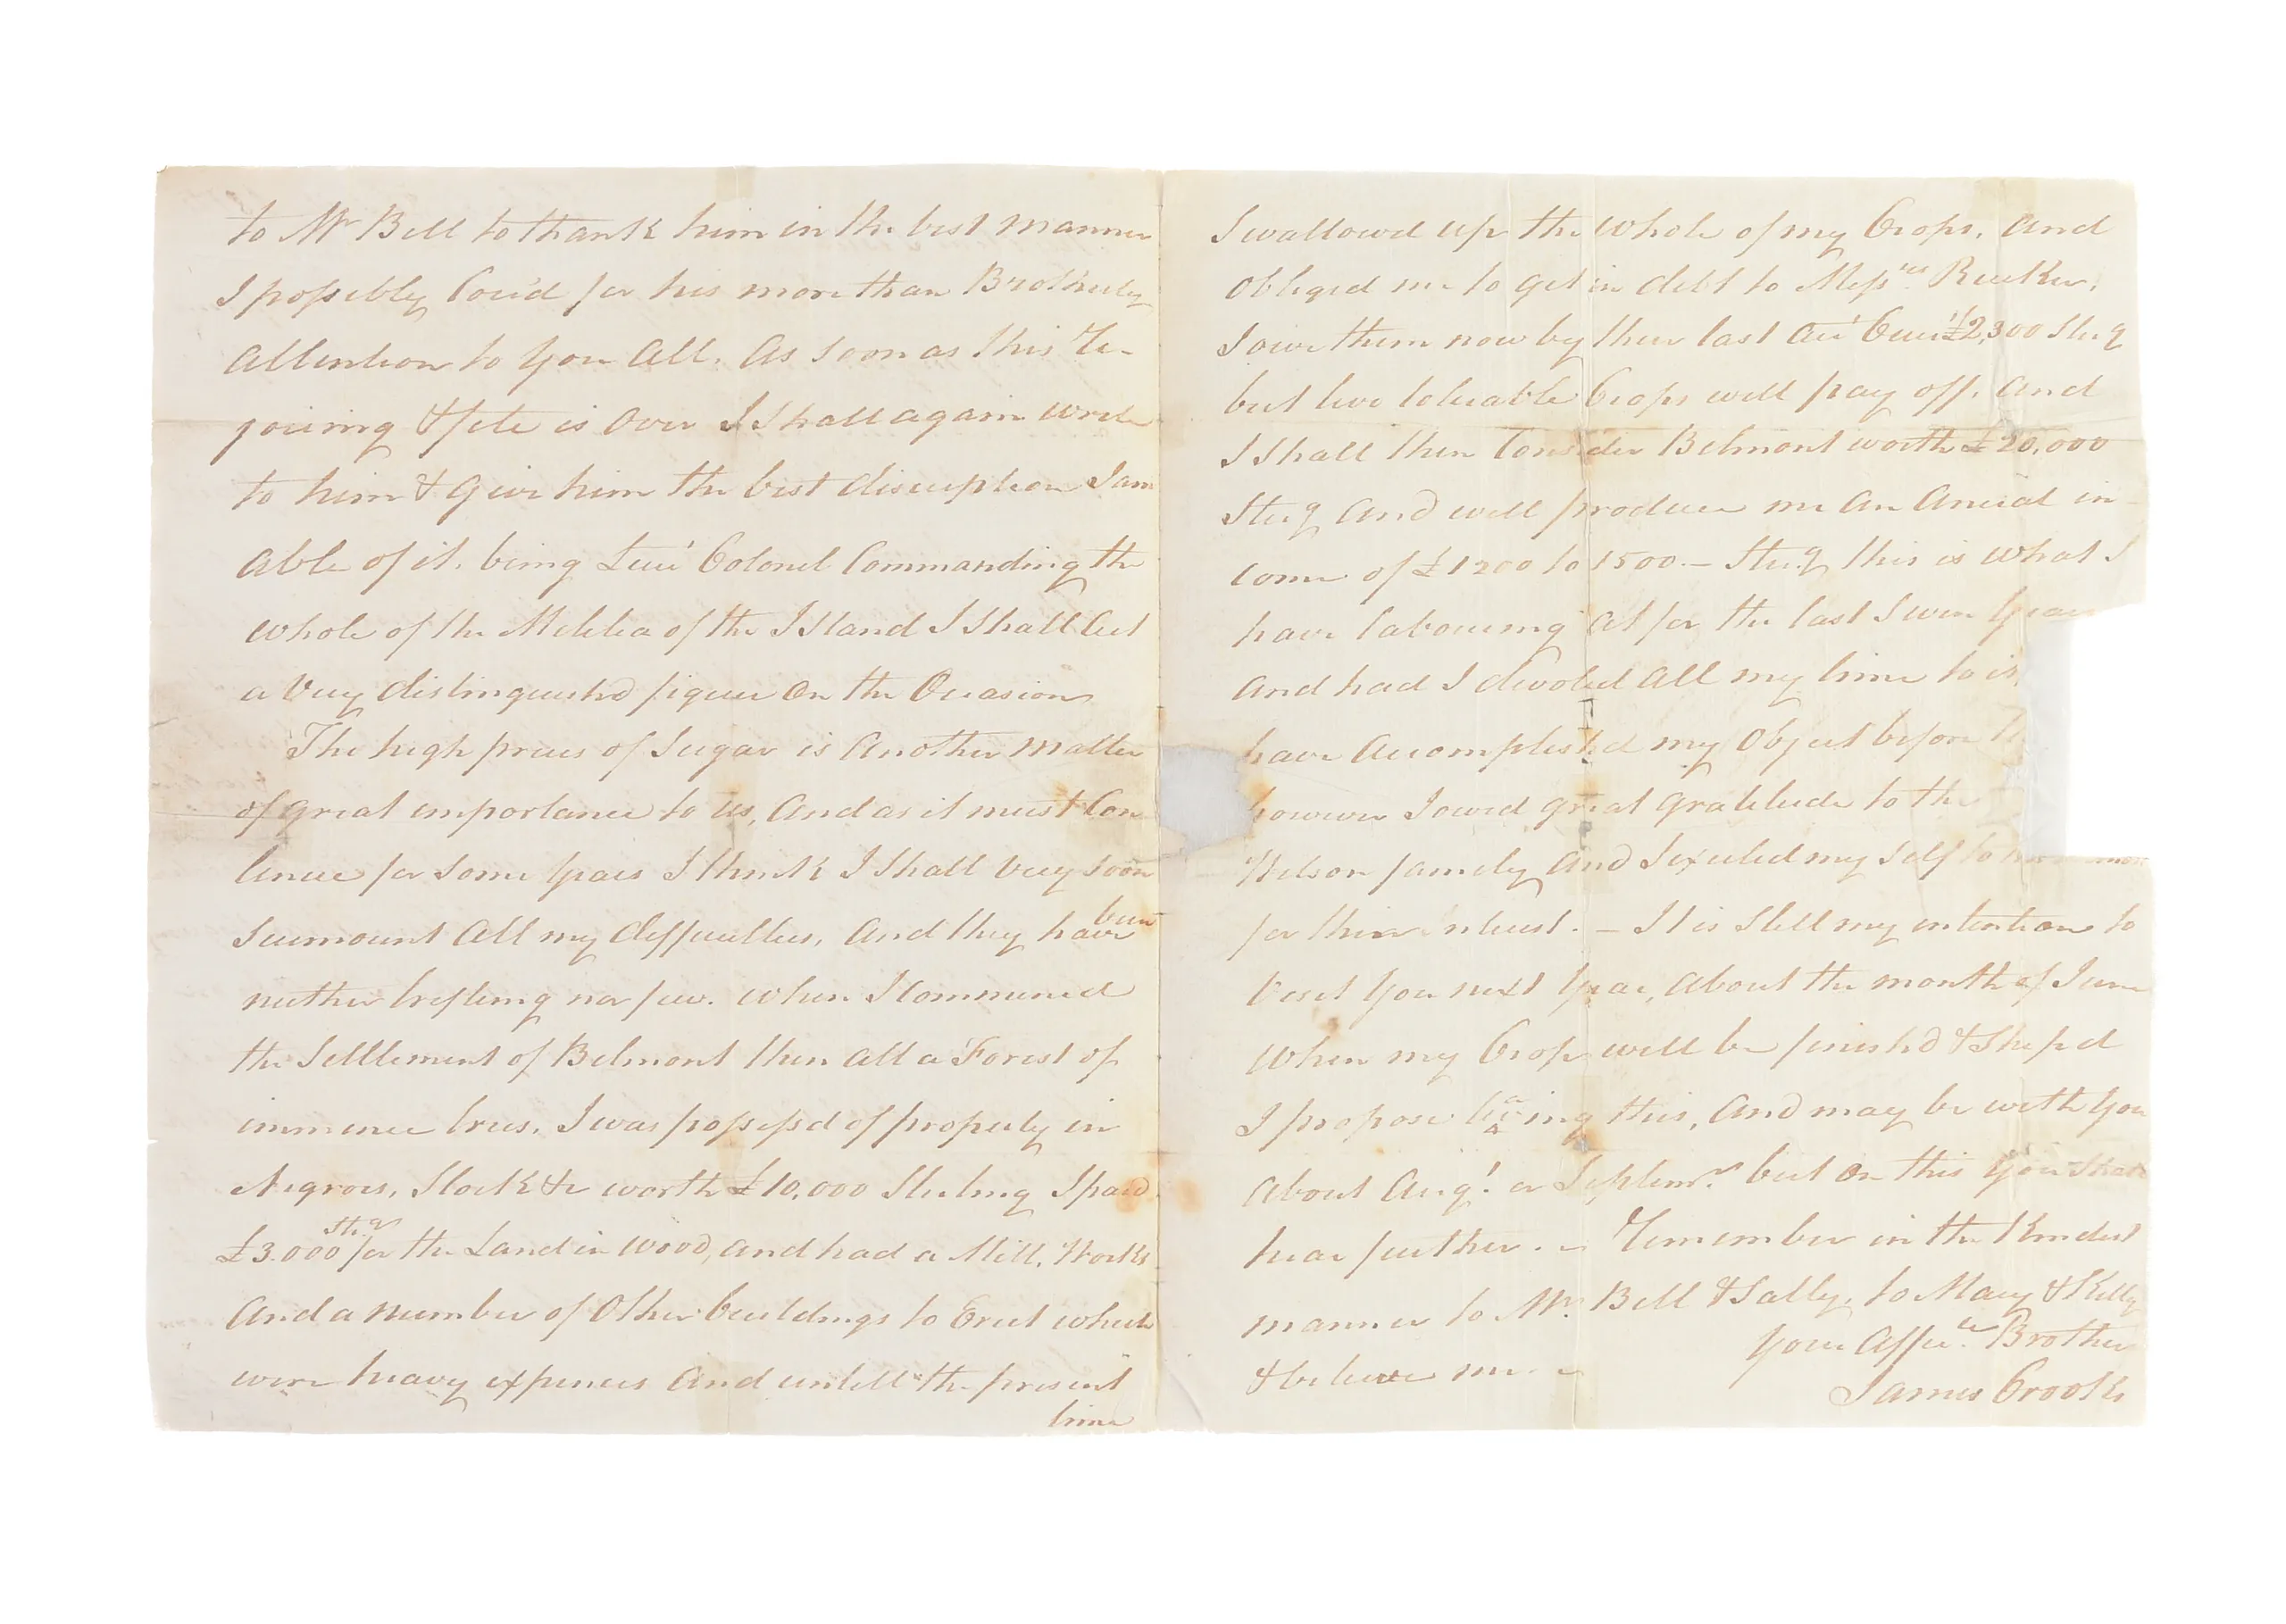 to Mr Bell to thank him in the best manner
I possibly Cou'd for his more than Brotherly
attention to you All. As soon as this Re-
joicing & fete is Over I Shall again write
to him & Give him the best discription I am
Able of it. being Lieut Colonel Commanding the
whole of the Militia of the Island I Shall Cut
a Very distinguish'd figure On the Occasion
The high prices of Sugar is Another Matter
of great importance to us, And as it must Con
tinue for Some Years I think I Shall Very Soon
Surmount All my difficulties, And they have been
neither trifleing nor few. when I Commenced
the Settlement of Belmont then all a Forest of
immence trees, I was possess'd of property in
Negroes, Stock &c worth £10,000 Sterling I paid
£3.000 Stg for the Land in Wood, and had a Mill, Works
And a number of Other buildings to Erect which
were heavy expences And untill the present
time
Swallowed up the whole of my Crops, And
Obliged me to get in debt to Messrs Rucker,
I owe them now by their last Act Curt £2,300 Sterg
but two tolerable Crops will pay off, And
I Shall then Consider Belmont worth £20,000
Sterg And will produce me An Anual in-
come of £1200 to 1500.- Sterg this is what I
have labouring At for the last Seven Years
And had I devoted All my time to it
have Accomplished my Object before
however I owed great Gratitude to the
Wilson family And I exerted my Self to
for their Interest. - It is Still my intention to
Visit You next Year, About the month of June
When my Crop will be finish'd & Ship'd
I propose leaving this, And may be with You
About Augt. or Septemr. but On this You Shall
hear further. - Remember in the Kindest
manner to Mr. Bell & Sally, to Mary & Kitty
& believe me - Your Affecte. Brother
James Crooks